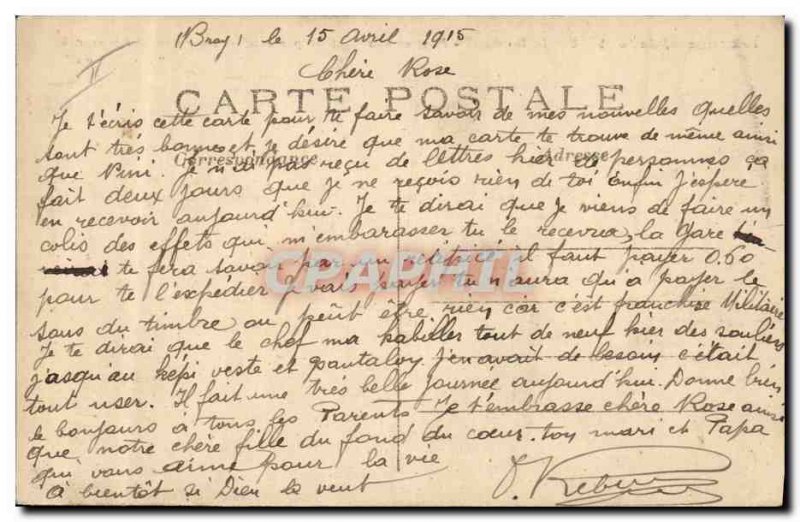 (Bray) le 15 Avril 1915
II
Chère Rose
CARTE POSTALE
Je t'écris cette carte pour te faire savoir de mes nouvelles quelles
sont très bonnes et je désire que ma carte te trouve de même ainsi
Correspondance Adresse
que Nini. Je n'ai pas reçu de lettres hier de personnes ça
fait deux jours que je ne reçois rien de toi enfin j'espère
en recevoir aujourd'hui. Je te dirai que je viens de faire un
colis des effets qui m'embarasser tu le recevra, la gare
te fera savoir par un il faut payer 0.60
CPAPHIL
pour te l'expedier je vais payer tu n'aura qu'a payer le
sous du timbre ou peût être rien car c'est franchise Militaire
Je te dirai que le chef ma habiller tout de neuf hier des souliers
jusqu'au képi veste et pantalon j'en avait de besoin c'était
tout user. Il fait une très belle journée aujourd'hui. Donne bien
le bonjours a tous les Parents Je t'embrasse chère Rose ainsi
que notre chère fille du fond du cœur ton mari et Papa
qui vous aime pour la vie
à bientôt si Dieu le veut